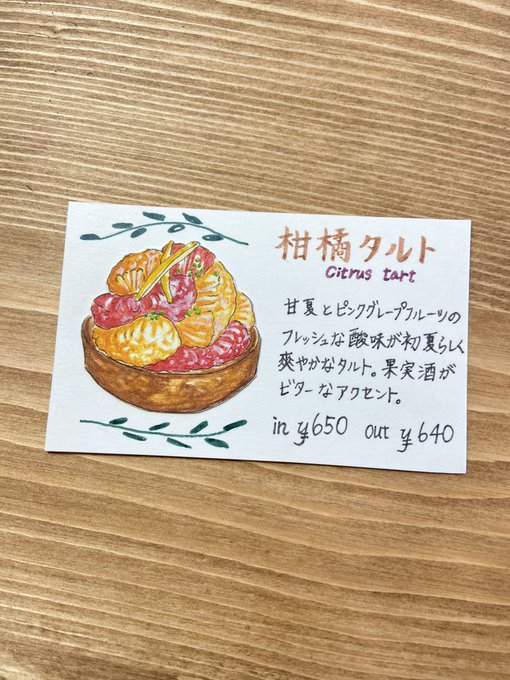 柑橘タルト
Citrus tart
甘夏とピンクグレープフルーツの
フレッシュな酸味が初夏らしく
爽やかなタルト。果実酒が
ビターなアクセント。
in ¥650 out ¥640